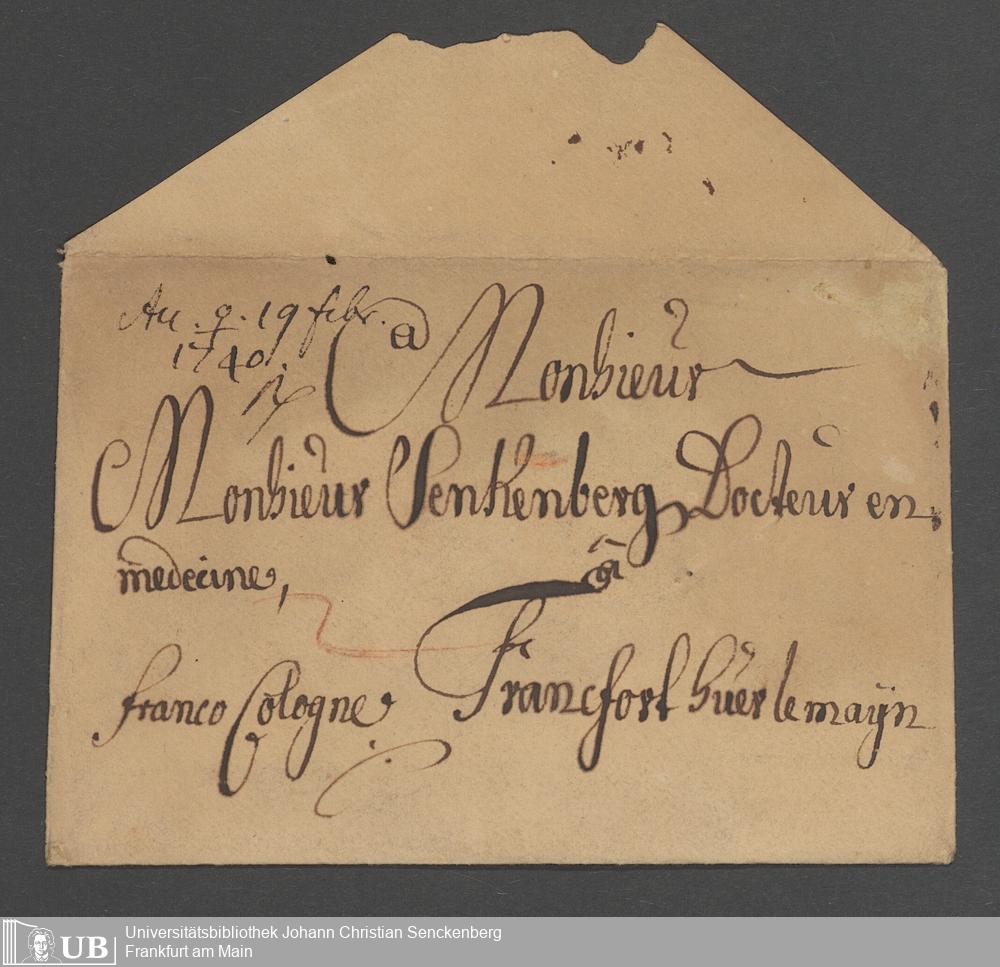 19 febr.
1740
a Monsieur
Monsieur Senkenberg Docteur en
medecine,
â
franco Cologne
Francfort suer le maÿn
UB
Universitätsbibliothek Johann Christian Senckenberg
Frankfurt am Main